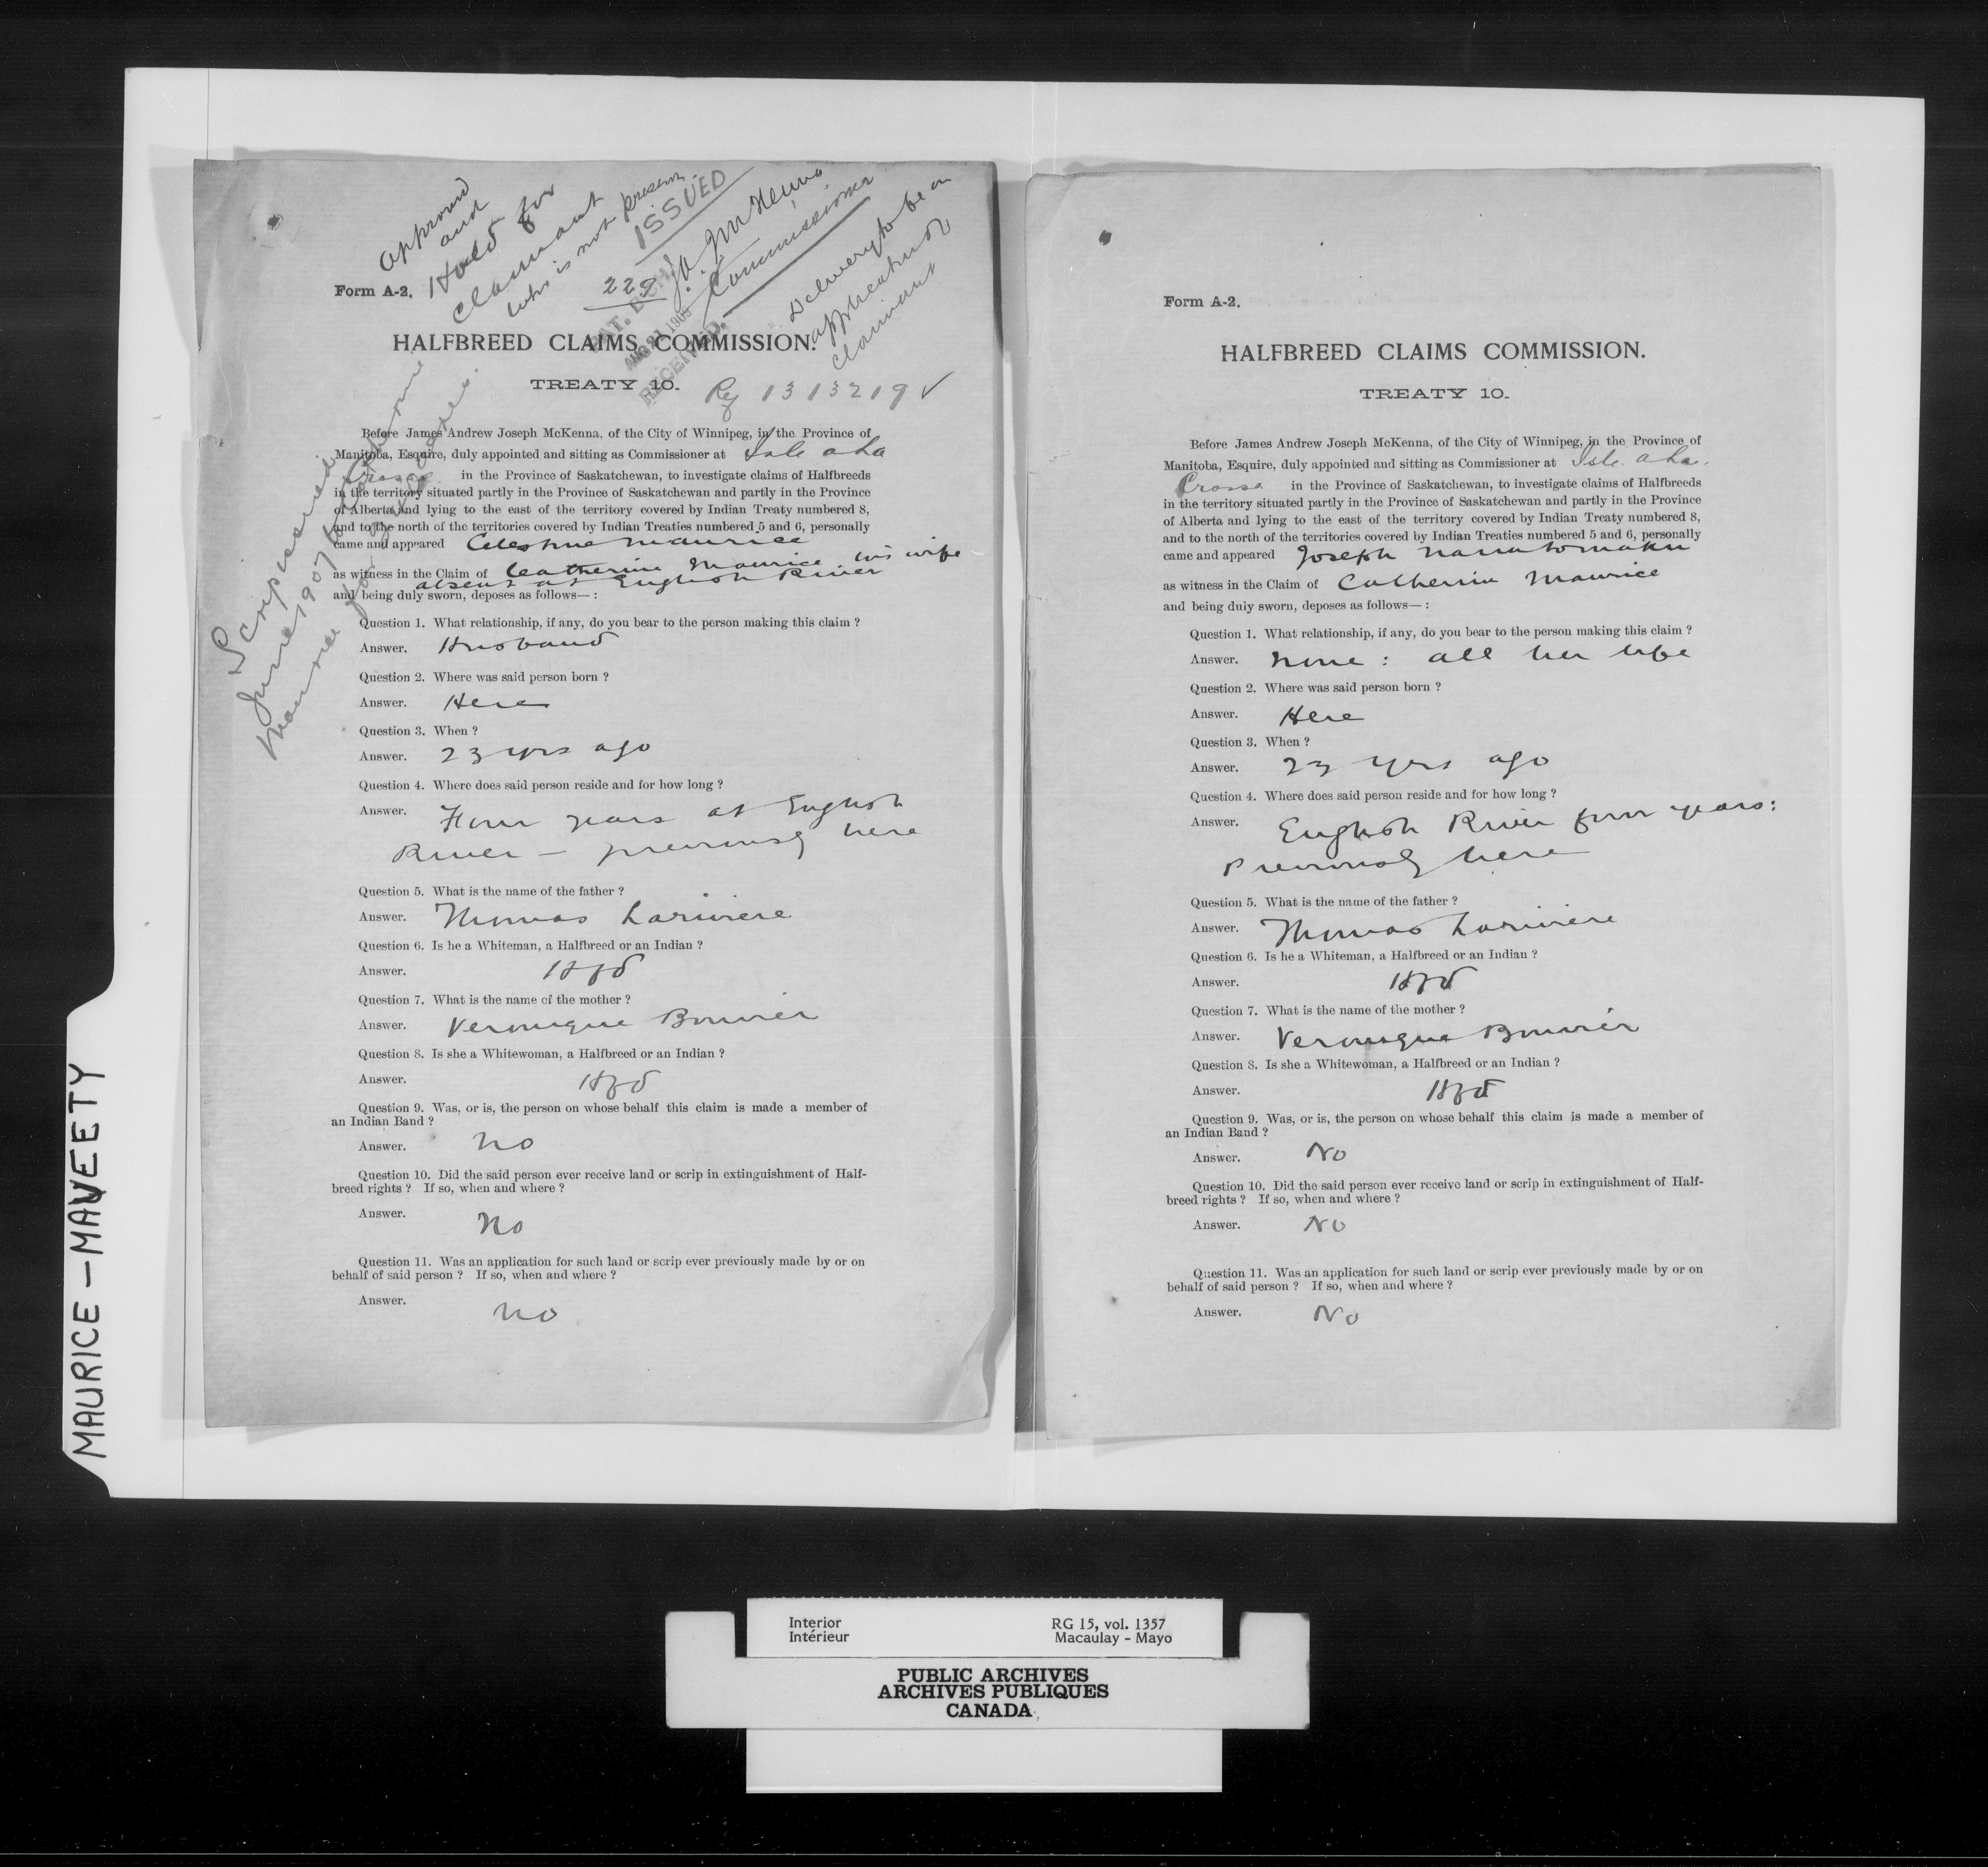 approved
and
Hold for
claimant
who is not present
ISSUED
J. A. J. McKenna
Commissioner
Delivery to be on
application of
claimant
229
Form A-2.
PAT. BCH.
AUG 21 190
RECEIVED.
HALFBREED CLAIMS COMMISSION.
TREATY 10.
Reg 1313219 ✓
Scrip issued
June 1907 to Catherine
Maurice for
Before James Andrew Joseph McKenna, of the City of Winnipeg, in the Province of
Manitoba, Esquire, duly appointed and sitting as Commissioner at Isle a La
Crosse in the Province of Saskatchewan, to investigate claims of Halfbreeds
in the territory situated partly in the Province of Saskatchewan and partly in the Province
of Alberta and lying to the east of the territory covered by Indian Treaty numbered 8,
and to the north of the territories covered by Indian Treaties numbered 5 and 6, personally
came and appeared Celestine Maurice
as witness in the Claim of Catherine Maurice his wife
absent at English River
and being duly sworn, deposes as follows—:
Question 1. What relationship, if any, do you bear to the person making this claim ?
Answer. Husband
Question 2. Where was said person born ?
Answer. Here
Question 3. When ?
Answer. 23 yrs ago
Question 4. Where does said person reside and for how long ?
Answer. Four years at English
River — previously here
Question 5. What is the name of the father ?
Answer. Thomas Lariviere
Question 6. Is he a Whiteman, a Halfbreed or an Indian ?
Answer. Hfbd
Question 7. What is the name of the mother ?
Answer. Veronique Bouvier
Question 8. Is she a Whitewoman, a Halfbreed or an Indian ?
Answer. Hfbd
Question 9. Was, or is, the person on whose behalf this claim is made a member of
an Indian Band ?
Answer. No
Question 10. Did the said person ever receive land or scrip in extinguishment of Half-
breed rights ? If so, when and where ?
Answer. No
Question 11. Was an application for such land or scrip ever previously made by or on
behalf of said person ? If so, when and where ?
Answer. No
Form A-2.
HALFBREED CLAIMS COMMISSION.
TREATY 10.
Before James Andrew Joseph McKenna, of the City of Winnipeg, in the Province of
Manitoba, Esquire, duly appointed and sitting as Commissioner at Isle a La
Crosse in the Province of Saskatchewan, to investigate claims of Halfbreeds
in the territory situated partly in the Province of Saskatchewan and partly in the Province
of Alberta and lying to the east of the territory covered by Indian Treaty numbered 8,
and to the north of the territories covered by Indian Treaties numbered 5 and 6, personally
came and appeared Joseph
as witness in the Claim of Catherine Maurice
and being duly sworn, deposes as follows—:
Question 1. What relationship, if any, do you bear to the person making this claim ?
Answer. None : all her life
Question 2. Where was said person born ?
Answer. Here
Question 3. When ?
Answer. 23 yrs ago
Question 4. Where does said person reside and for how long ?
Answer. English River four years:
Previously here
Question 5. What is the name of the father ?
Answer. Thomas Lariviere
Question 6. Is he a Whiteman, a Halfbreed or an Indian ?
Answer. Hfbd
Question 7. What is the name of the mother ?
Answer. Veronique Bouvier
Question 8. Is she a Whitewoman, a Halfbreed or an Indian ?
Answer. Hfbd
Question 9. Was, or is, the person on whose behalf this claim is made a member of
an Indian Band ?
Answer. No
Question 10. Did the said person ever receive land or scrip in extinguishment of Half-
breed rights ? If so, when and where ?
Answer. No
Question 11. Was an application for such land or scrip ever previously made by or on
behalf of said person ? If so, when and where ?
Answer. No
MAURICE – MAVEETY
Interior RG 15, vol. 1357
Intérieur Macaulay - Mayo
PUBLIC ARCHIVES
ARCHIVES PUBLIQUES
CANADA